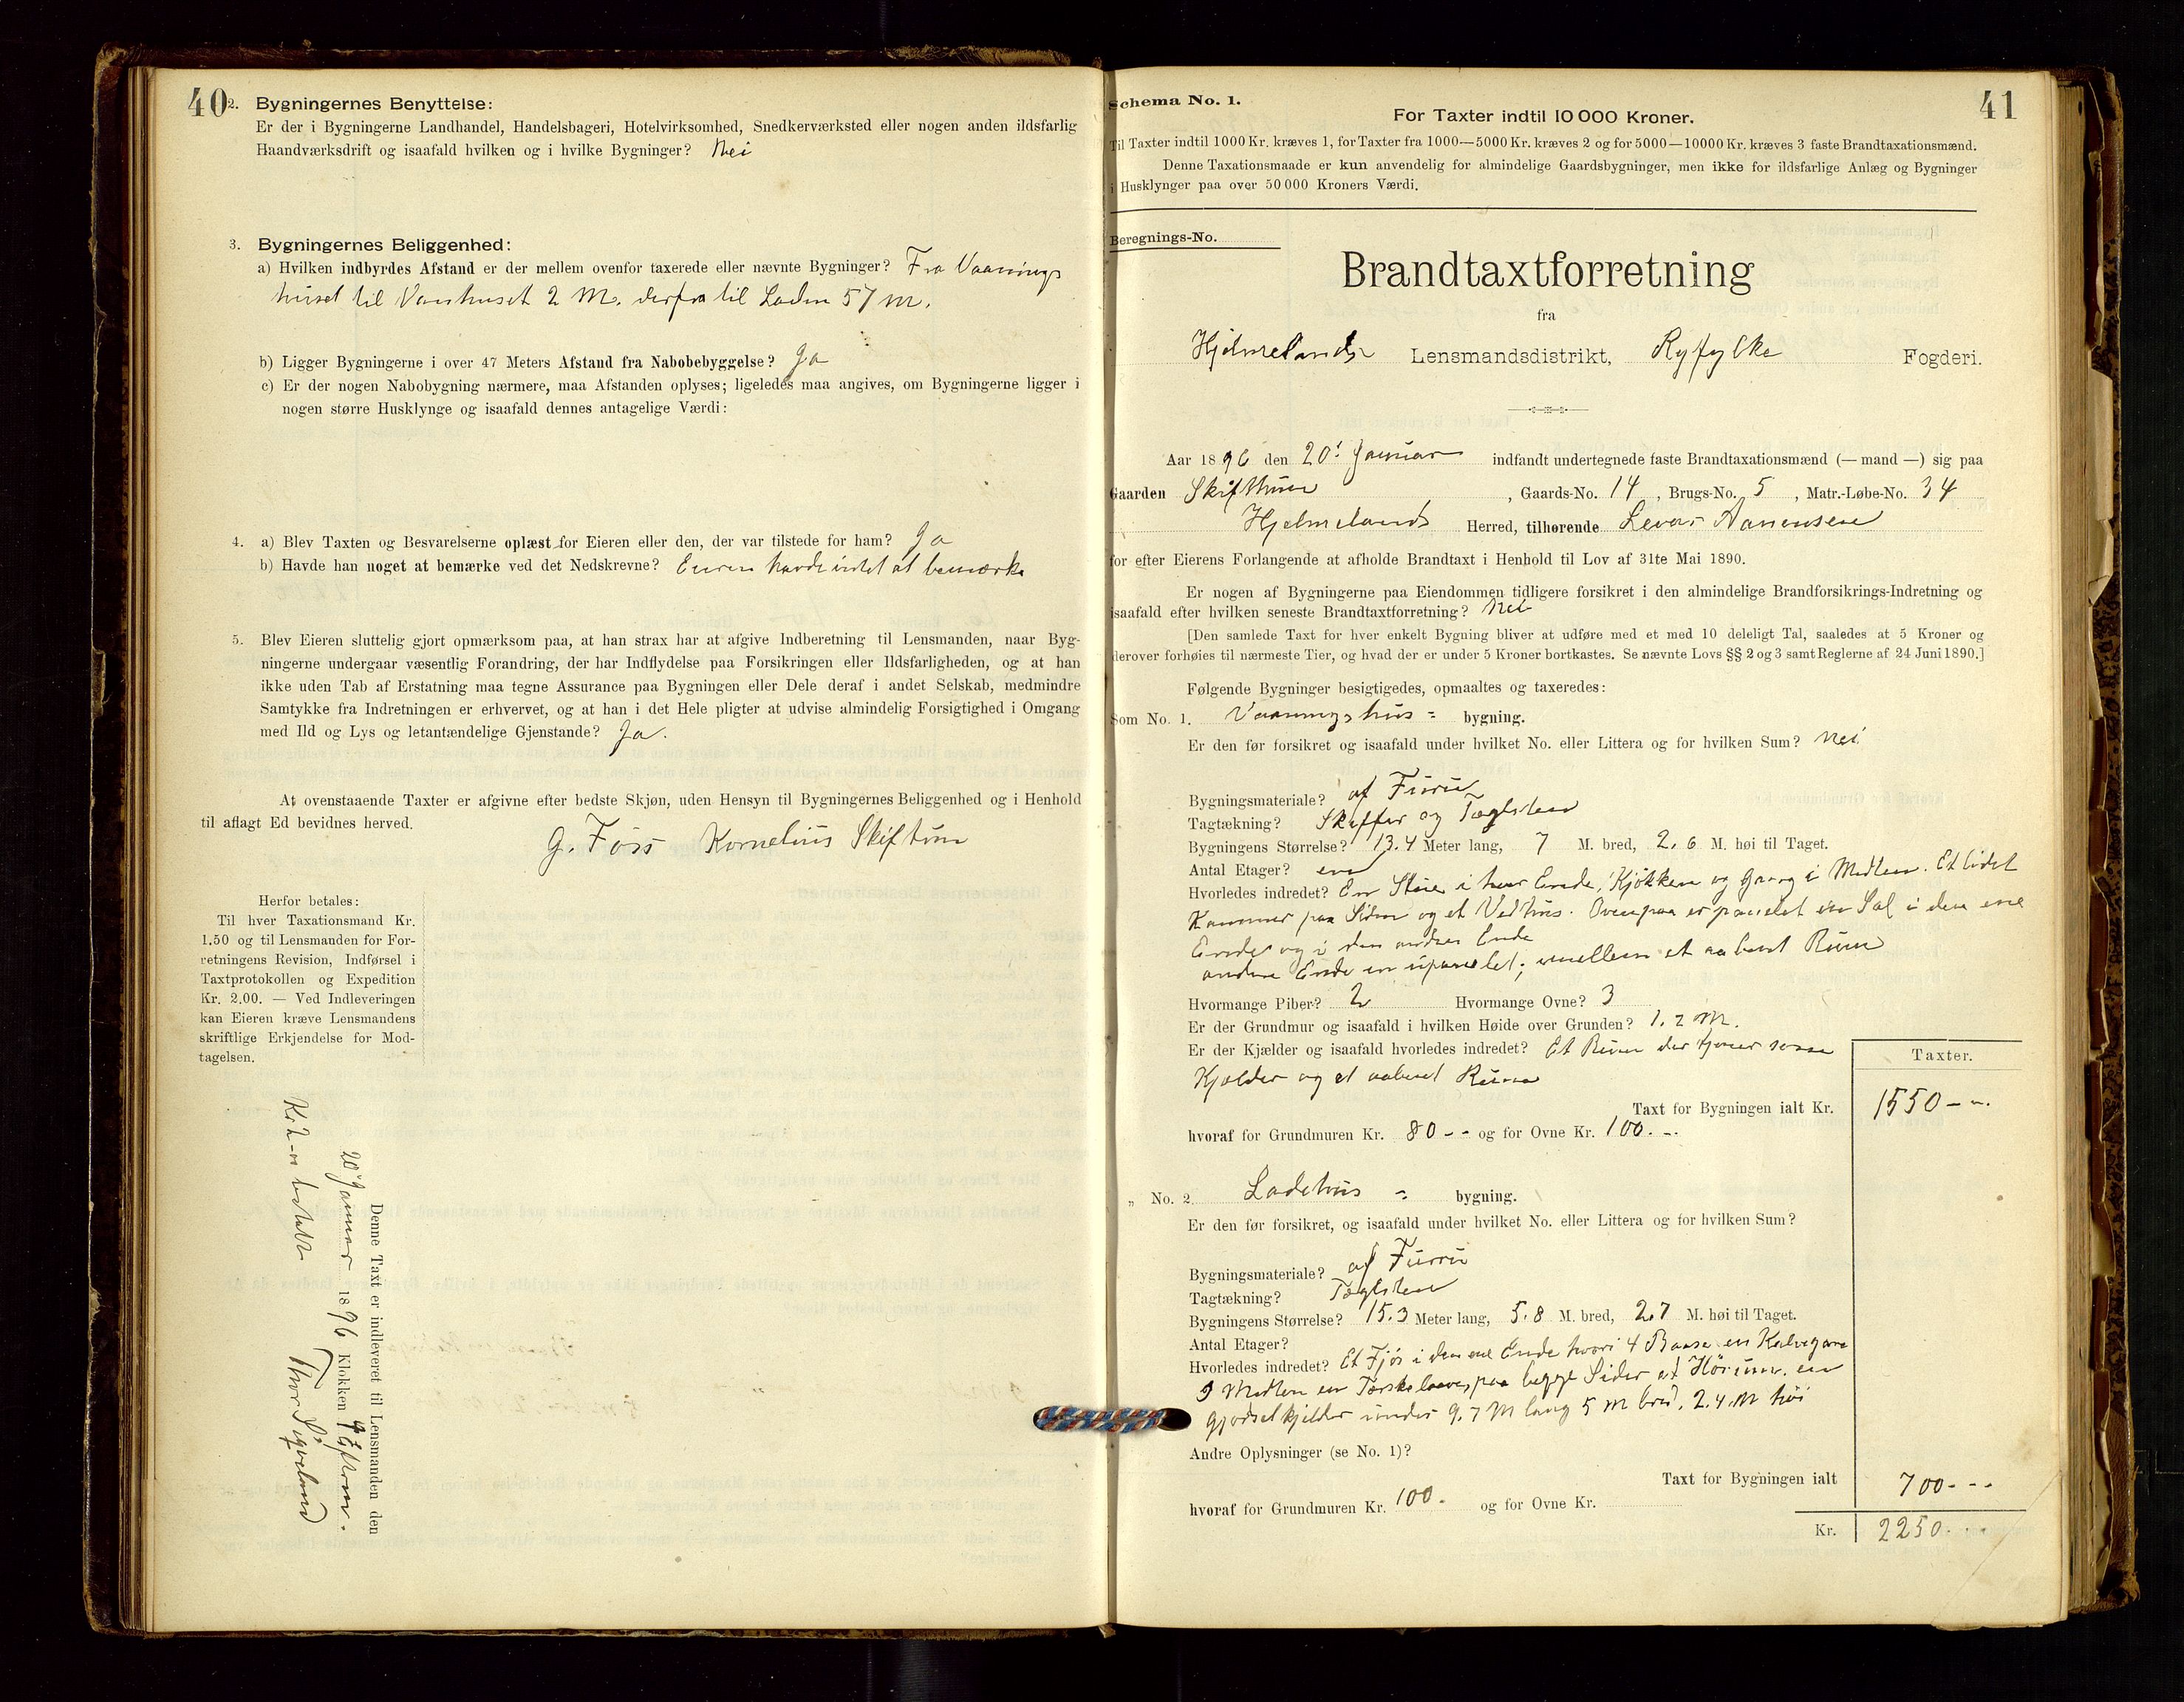 40
2. Bygningernes Benyttelse:
Er der i Bygningerne Landhandel, Handelsbageri, Hotelvirksomhed, Snedkerværksted eller nogen anden ildsfarlig
Haandværksdrift og isaafald hvilken og i hvilke Bygninger? Nei
3. Bygningernes Beliggenhed:
a) Hvilken indbyrdes Afstand er der mellem ovenfor taxerede eller nævnte Bygninger? Fra Vaanings
huset til Vanhuset 2 M. derfra til Laden 57 m.
b) Ligger Bygningerne i over 47 Meters Afstand fra Nabobebyggelse? Ja
c) Er der nogen Nabobygning nærmere, maa Afstanden oplyses; ligeledes maa angives, om Bygningerne ligger i
nogen større Husklynge og isaafald dennes antagelige Værdi:
4. a) Blev Taxten og Besvarelserne oplæst for Eieren eller den, der var tilstede for ham? Ja
b) Havde han noget at bemærke ved det Nedskrevne? Eieren havde intet at bemærke
5. Blev Eieren sluttelig gjort opmærksom paa, at han strax har at afgive Indberetning til Lensmanden, naar Byg-
ningerne undergaar væsentlig Forandring, der har Indflydelse paa Forsikringen eller Ildsfarligheden, og at han
ikke uden Tab af Erstatning maa tegne Assurance paa Bygningen eller Dele deraf i andet Selskab, medmindre
Samtykke fra Indretningen er erhvervet, og at han i det Hele pligter at udvise almindelig Forsigtighed i Omgang
med Ild og Lys og letantændelige Gjenstande? Ja.
At ovenstaaende Taxter er afgivne efter bedste Skjøn, uden Hensyn til Bygningernes Beliggenhed og i Henhold
til aflagt Ed bevidnes herved.
G. Foss Kornelius Skiftun
Herfor betales:
Til hver Taxationsmand Kr.
1.50 og til Lensmanden for For-
retningens Revision, Indførsel i
Taxtprotokollen og Expedition
Kr. 2.00. — Ved Indleveringen
kan Eieren kræve Lensmandens
skriftlige Erkjendelse for Mod-
tagelsen.
Denne Taxt er indleveret til Lensmanden den
20 Januar 1896 Klokken 4 Efterm.
Kr. 2 - betalt Thor Sigveland
41
Schema No. 1.
For Taxter indtil 10 000 Kroner.
Til Taxter indtil 1000 Kr. kræves 1, for Taxter fra 1000—5000 Kr. kræves 2 og for 5000—10000 Kr. kræves 3 faste Brandtaxationsmænd.
Denne Taxationsmaade er kun anvendelig for almindelige Gaardsbygninger, men ikke for ildsfarlige Anlæg og Bygninger
i Husklynger paa over 50 000 Kroners Værdi.
Beregnings-No.
Brandtaxtforretning
fra
Hjelmelands Lensmandsdistrikt, Ryfylke Fogderi.
Aar 1896 den 20. Januar indfandt undertegnede faste Brandtaxationsmænd (— mand —) sig paa
Gaarden Skifthun, Gaards-No. 14, Brugs-No. 5, Matr.-Løbe-No. 34
Hjelmelands Herred, tilhørende Aanensen
for efter Eierens Forlangende at afholde Brandtaxt i Henhold til Lov af 31te Mai 1890.
Er nogen af Bygningerne paa Eiendommen tidligere forsikret i den almindelige Brandforsikrings-Indretning og
isaafald efter hvilken seneste Brandtaxtforretning? Nei
[Den samlede Taxt for hver enkelt Bygning bliver at udføre med et med 10 deleligt Tal, saaledes at 5 Kroner og
derover forhøies til nærmeste Tier, og hvad der er under 5 Kroner bortkastes. Se nævnte Lovs §§ 2 og 3 samt Reglerne af 24 Juni 1890.]
Følgende Bygninger besigtigedes, opmaaltes og taxeredes:
Som No. 1. Vaaningshus = bygning.
Er den før forsikret og isaafald under hvilket No. eller Littera og for hvilken Sum? Nei
Bygningsmateriale? af Furu
Tagtækning? Skiffer og Taglsten
Bygningens Størrelse? 13.4 Meter lang, 7 M. bred, 2.6 M. høi til Taget.
Antal Etager? en
Hvorledes indredet? En Stue i hver Ende, Kjøkken og Gang i Midten. Et lidet
Kammer paa Siden og et Vedhus. Ovenpaa er panelet en Sal i den ene
Ende og i den anden Ende
anden Ende en upanelet; imellem et aabent Rum
Hvormange Piber? 2 Hvormange Ovne? 3
Er der Grundmur og isaafald i hvilken Høide over Grunden? 1.2 M.
Er der Kjælder og isaafald hvorledes indredet? Et Rum der tjener som
Kjælder og et aabent Rum
Taxter.
Taxt for Bygningen ialt Kr. 1550 - -
hvoraf for Grundmuren Kr. 80 - - og for Ovne Kr. 100. -
„ No. 2. Ladehus = bygning.
Er den før forsikret, og isaafald under hvilket No. eller Littera og for hvilken Sum?
Bygningsmateriale? af Furru
Tagtækning? Taglsten
Bygningens Størrelse? 15.3 Meter lang, 5.8 M. bred, 2.7 M. høi til Taget.
Antal Etager?
Hvorledes indredet? Et Fjøs i den ene Ende hvori 4 Baase en
I Midten en Tærskelaave, paa begge Sider et Hørum. en
Gjødselkjelder under 9.7 M lang 5 M bred, 2.4 M høi
Andre Oplysninger (se No. 1)?
Taxt for Bygningen ialt 700 - -
hvoraf for Grundmuren Kr. 100. og for Ovne Kr.
Kr. 2250. - -